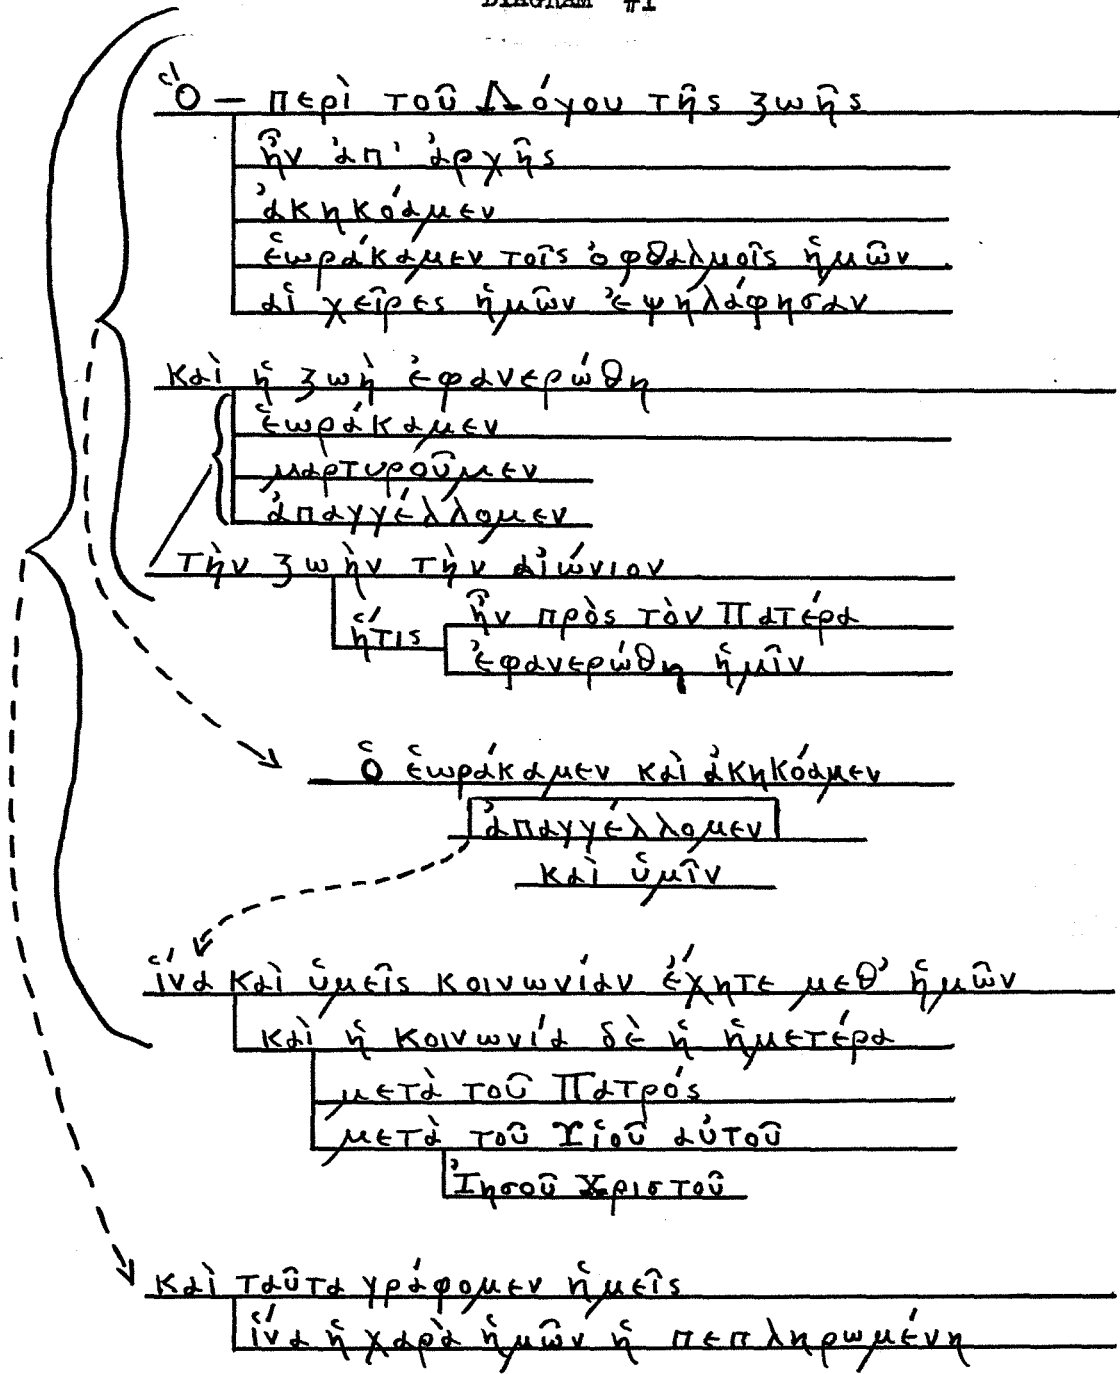 DIAGRAM #1
Ὅ — περὶ τοῦ Λόγου τῆς ζωῆς
ἦν ἀπ' ἀρχῆς
ἀκηκόαμεν
ἑωράκαμεν τοῖς ὀφθαλμοῖς ἡμῶν
αἱ χεῖρες ἡμῶν ἐψηλάφησαν
καὶ ἡ ζωὴ ἐφανερώθη
ἑωράκαμεν
μαρτυροῦμεν
ἀπαγγέλλομεν
τὴν ζωὴν τὴν αἰώνιον
ἥτις
ἦν πρὸς τὸν Πατέρα
ἐφανερώθη ἡμῖν
ὃ ἑωράκαμεν καὶ ἀκηκόαμεν
ἀπαγγέλλομεν
καὶ ὑμῖν
ἵνα καὶ ὑμεῖς κοινωνίαν ἔχητε μεθ' ἡμῶν
καὶ ἡ κοινωνία δὲ ἡ ἡμετέρα
μετὰ τοῦ Πατρός
μετὰ τοῦ Υἱοῦ αὐτοῦ
Ἰησοῦ Χριστοῦ
καὶ ταῦτα γράφομεν ἡμεῖς
ἵνα ἡ χαρὰ ἡμῶν ἡ πεπληρωμένη